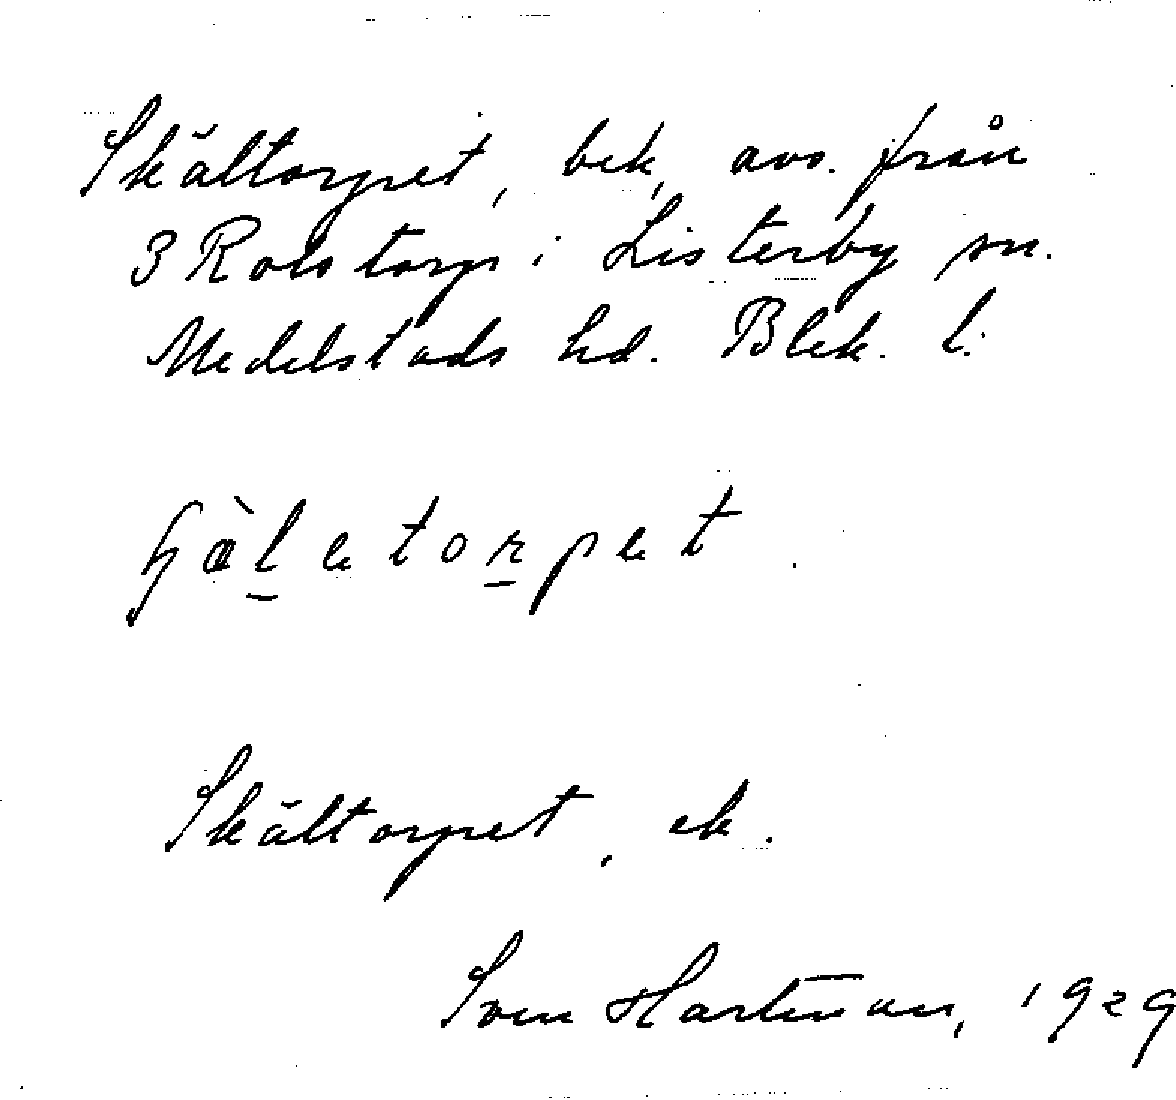 Skältorpet, bek, avs. från
3 Rolstorp i Listerby sn.
Medelstads hd. Blek. l.
ɧὰl̲etor̲pet
Skältorpet, ek.
Sven Hartman, 1929